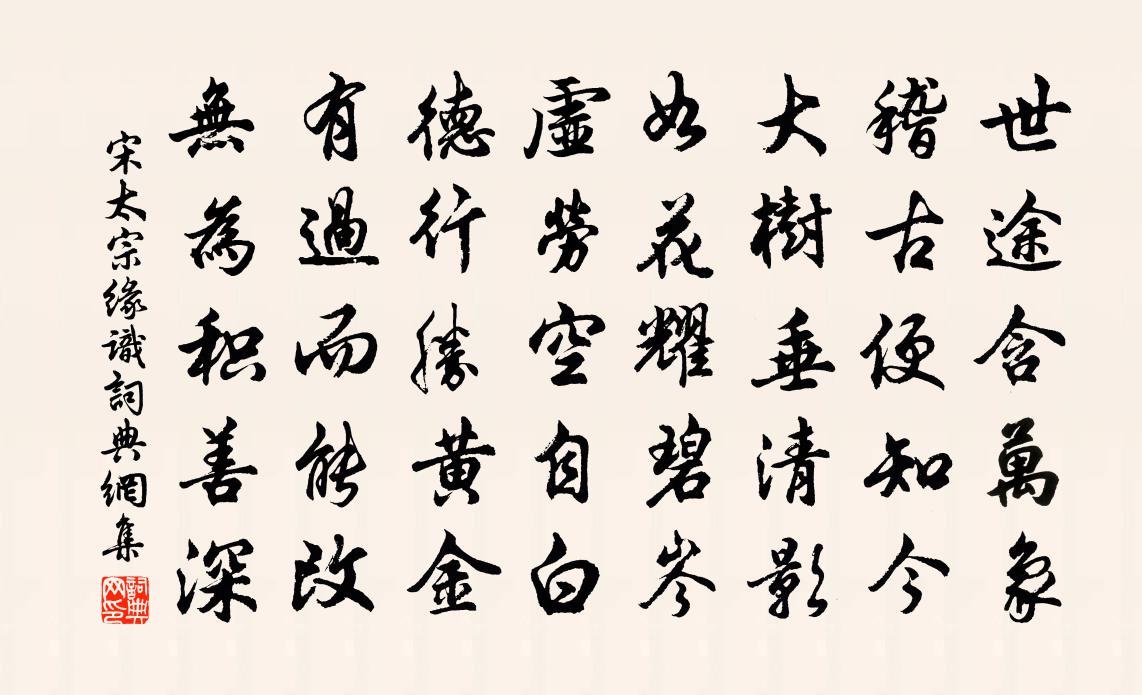 世途含萬象
稽古便知今
大樹垂清影
如花耀碧岑
虛勞空自白
德行勝黃金
有過而能改
無為积善深
宋太宗緣識詞典網集
詞典網印